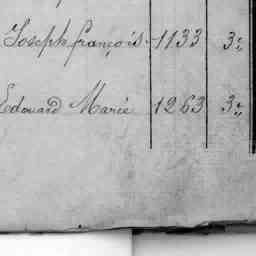 Joseph françois. 1133 3e
Edouard Marie 1263 3e